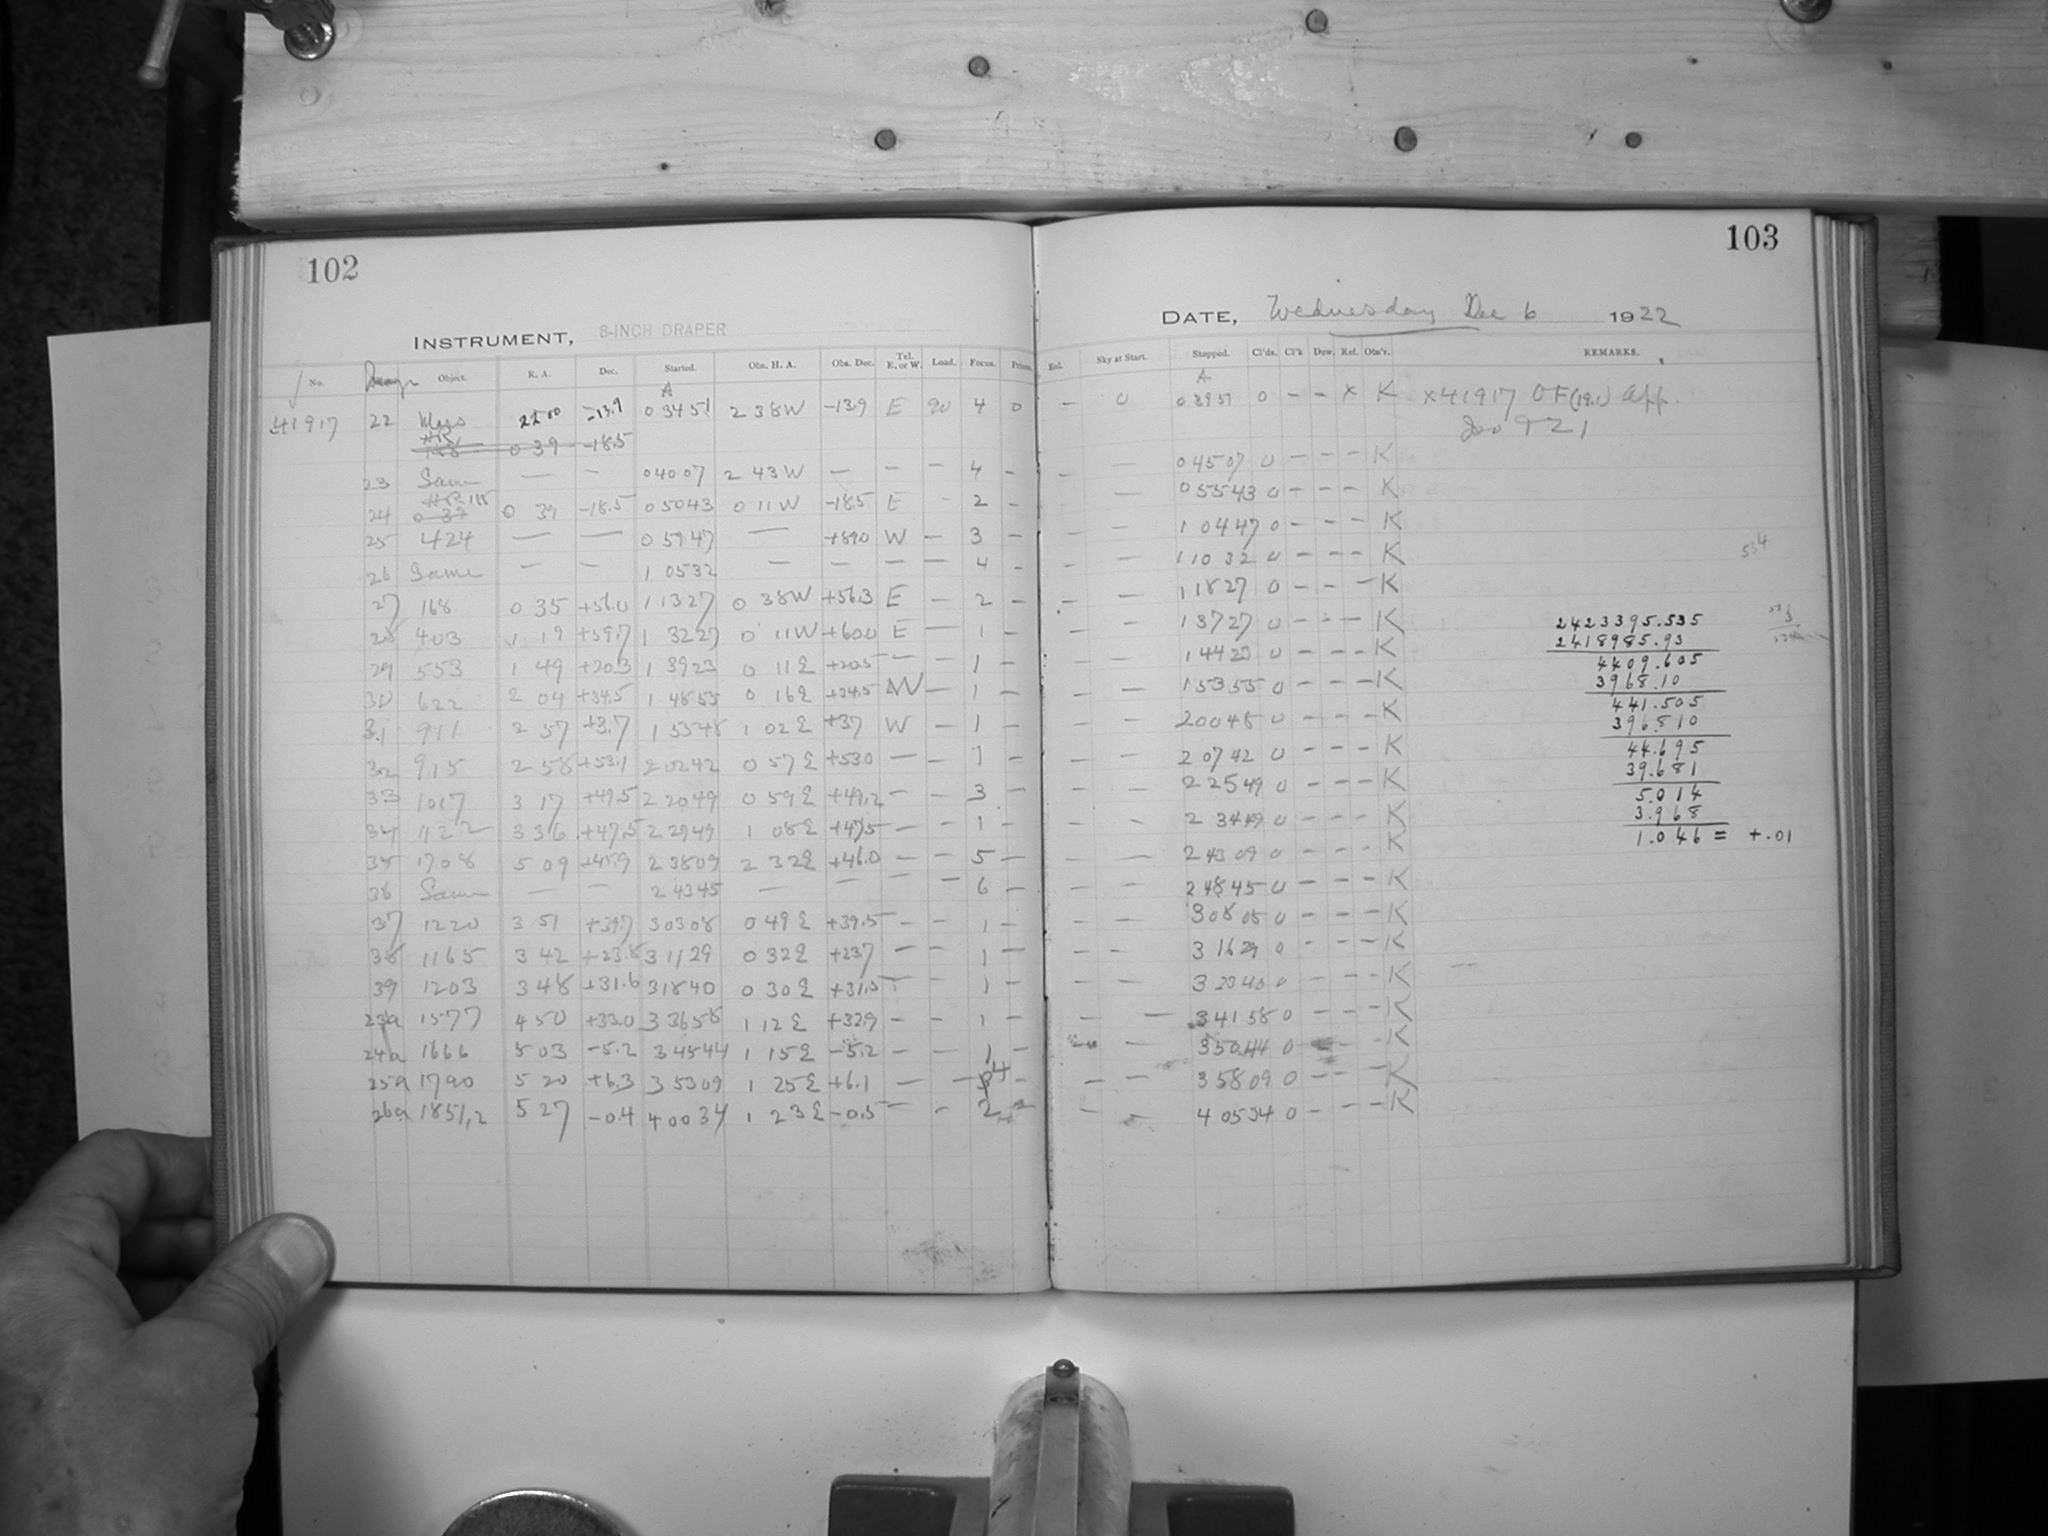 102
INSTRUMENT, 8-INCH DRAPER
No. Object. R. A. Dec. Started. Obs. H. A. Obs. Dec. Tel. E. or W. Load. Focus.
A
41917 22 Mars 22 00 -13.9 0 34 51 2 38 W -13.9 E 90 4 0
0 39 -18.5
23 Same — — 0 40 07 2 43 W — — — 4 —
24 0 39 0 39 -18.5 0 50 43 0 11 W -18.5 E 2 —
25 424 — — 0 59 47 — +89.0 W — 3 —
26 Same — — 1 05 32 — — — — 4 —
27 168 0 35 +56.0 1 13 27 0 38 W +56.3 E — 2 —
28 403 1 19 +59.7 1 32 27 0 11 W +60.0 E — 1 —
29 553 1 49 +20.3 1 39 23 0 11 E +20.5 — — 1 —
30 622 2 04 +34.5 1 48 55 0 16 E +34.5 W — 1 —
31 911 2 57 +3.7 1 55 48 1 02 E +3.7 W — 1 —
32 915 2 58 +53.1 2 02 42 0 57 E +53.0 — — 1 —
33 1017 3 17 +49.5 2 20 49 0 59 E +49.2 — — 3 —
34 1122 3 36 +47.5 2 29 49 1 08 E +47.5 — — 1 —
35 1708 5 09 +45.9 2 38 09 2 32 E +46.0 — — 5 —
36 Same — — 2 43 45 — — — — 6 —
37 1220 3 51 +39.7 3 03 08 0 49 E +39.5 — — 1 —
38 1165 3 42 +23.8 3 11 29 0 32 E +23.7 — — 1 —
39 1203 3 48 +31.6 3 18 40 0 30 E +31.5 — 1 —
23a 1577 4 50 +33.0 3 36 58 1 12 E +32.9 — — 1 —
24a 1666 5 03 -5.2 3 45 44 1 15 E -5.2 — — 1 —
25a 1790 5 20 +6.3 3 53 09 1 25 E +6.1 — — 4 —
26a 1851,2 5 27 -0.4 4 00 34 1 23 E -0.5 — — 2
103
DATE, Wednesday Dec 6 1922
Sky at Start. Stopped. Cl'ds. Cl'k Dew. Ref. Obs'r. REMARKS.
A
— 0 0 39 51 0 — — x K x41917 OF (19.1) app.
Jan 9 21
— — 0 45 07 0 — — — K
— 0 55 43 0 — — — K
— 1 04 47 0 — — — K
— — 1 10 32 0 — — — K
— — 1 18 27 0 — — — K
— — 1 37 27 0 — — — K
— — 1 44 23 0 — — — K
— — 1 53 55 0 — — — K
— — 2 00 48 0 — — — K
— — 2 07 42 0 — — — K
— — 2 25 49 0 — — — K
— — 2 34 49 0 — — — K
— — 2 43 09 0 — — — K
— — 2 48 45 0 — — — K
— — 3 08 08 0 — — — K
— — 3 16 29 0 — — — K
— — 3 23 40 0 — — — K
— — 3 41 58 0 — — — K
— 3 50 44 0 — — — K
— — 3 58 09 0 — — — K
— — 4 05 34 0 — — — K
534
2423395.535
2418985.93
4409.605
3968.10
441.505
396.810
44.695
39.681
5.014
3.968
1.046 = +.01